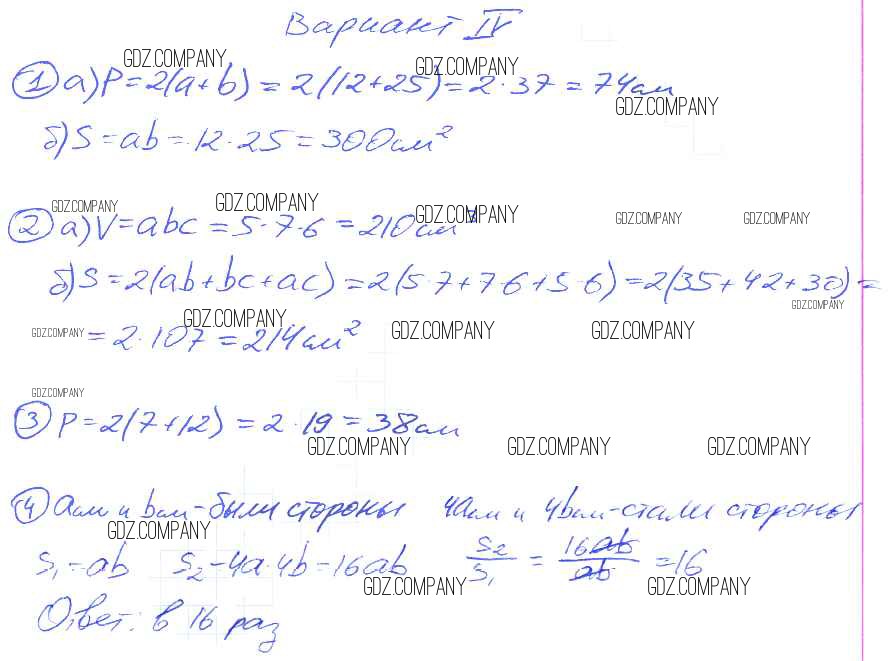 Вариант IV
GDZ.COMPANY GDZ.COMPANY
1 а) P = 2(a + b) = 2(12 + 25) = 2 · 37 = 74 см
GDZ.COMPANY
б) S = ab = 12 · 25 = 300 см²
GDZ.COMPANY GDZ.COMPANY GDZ.COMPANY GDZ.COMPANY GDZ.COMPANY
2 а) V = abc = 5 · 7 · 6 = 210 см³
б) S = 2(ab + bc + ac) = 2(5 · 7 + 7 · 6 + 5 · 6) = 2(35 + 42 + 30) =
GDZ.COMPANY
GDZ.COMPANY GDZ.COMPANY GDZ.COMPANY GDZ.COMPANY
= 2 · 107 = 214 см²
GDZ.COMPANY
3 P = 2(7 + 12) = 2 · 19 = 38 см
GDZ.COMPANY GDZ.COMPANY GDZ.COMPANY
4 a см и b см - были стороны 4a см и 4b см - стали стороны
GDZ.COMPANY
S₁ = ab S₂ - 4a · 4b = 16ab S₂/S₁ = 16ab/ab = 16
GDZ.COMPANY GDZ.COMPANY
Ответ: в 16 раз